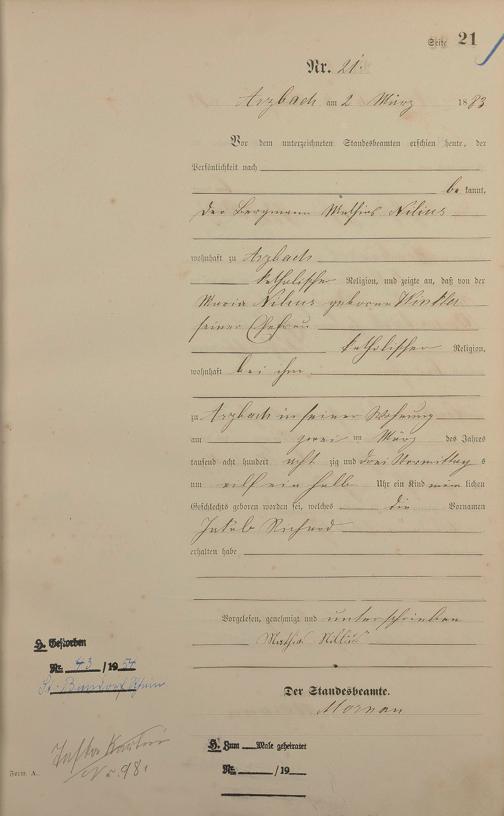 Seite 21
Nr. 21.
Arzbach am 2 März 1883
Vor dem unterzeichneten Standesbeamten erschien heute, der
Persönlichkeit nach
be kannt,
der Bergmann Mathias Nilius
wohnhaft zu Arzbach
katholischer Religion, und zeigte an, daß von der
Maria Nilius geborene Winkler
seiner Ehefrau
katholischer Religion,
wohnhaft bei ihm
zu Arzbach in seiner Wohnung
am zwei ten März des Jahres
tausend acht hundert acht zig und drei Vormittag s
um elf ein halb Uhr ein Kind männ lichen
Geschlechts geboren worden sei, welches die Vornamen
Jakob Richard
erhalten habe
Vorgelesen, genehmigt und unterschrieben
Mathias Nilius
Der Standesbeamte.
H. Gestorben
Nr. 43 /1954
St.
H. Zum Male geheiratet
Nr. /19
Nr. 98.
Form. A.